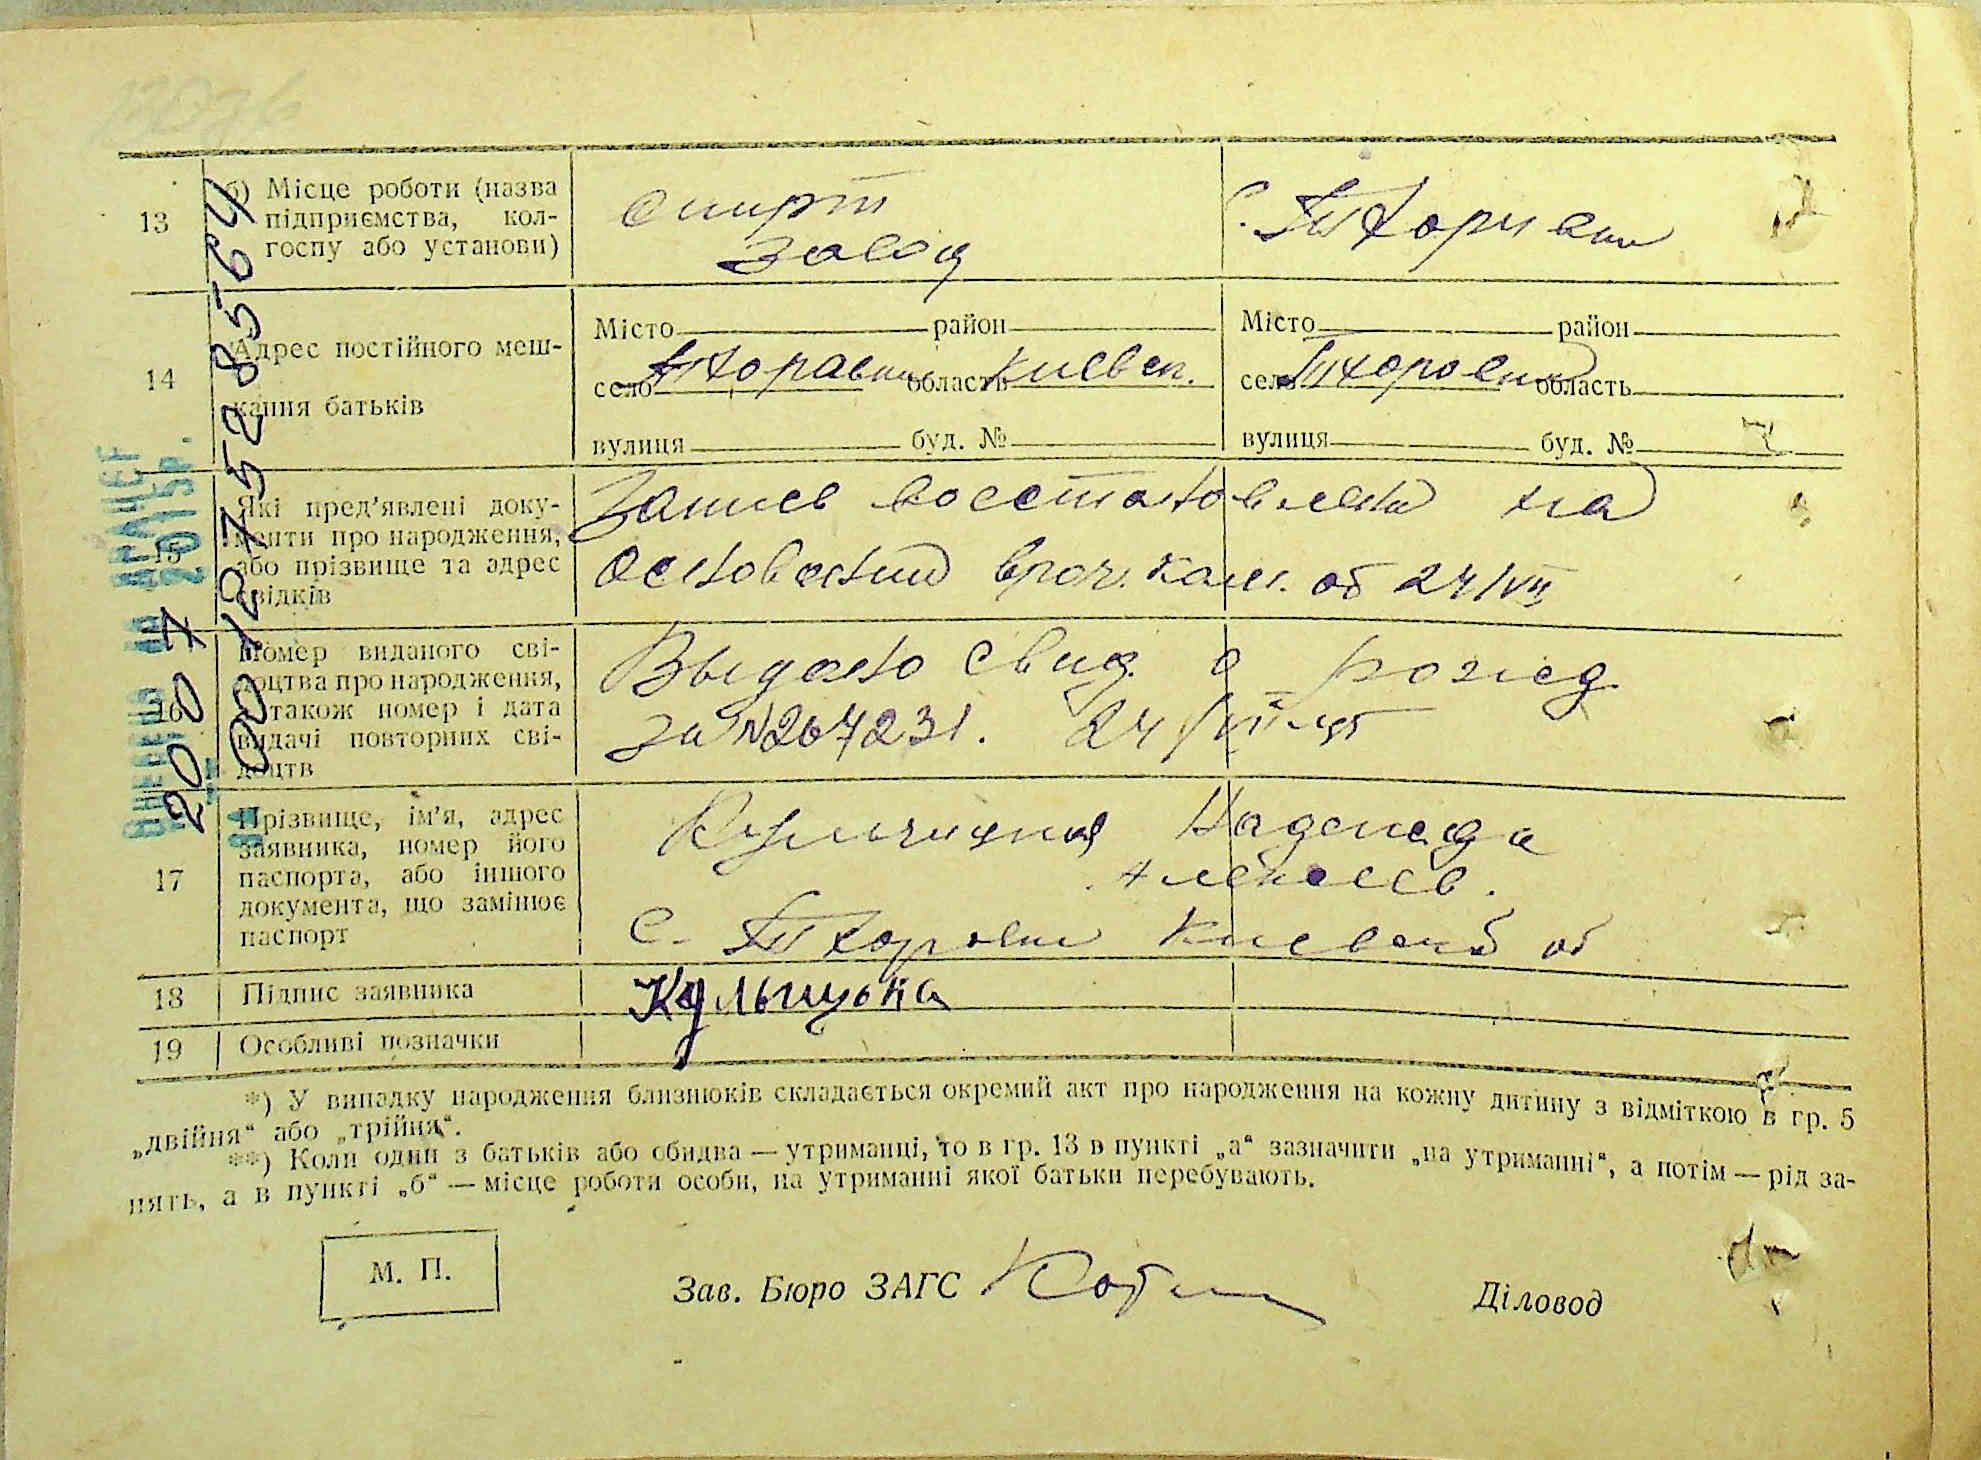 13
б) Місце роботи (назва
підприємства, кол-
госпу або установи)
спирт
завод
с.
14
Адрес постійного меш-
кання батьків
Місто район
село область Киевск.
вулиця буд. №
Місто район
село область
вулиця буд. №
15
Які пред'явлені доку-
менти про народження,
або прізвище та адрес
свідків
Запись восстановлена на
основании врач. ком. от 24/VII
16
Номер виданого сві-
доцтва про народження,
а також номер і дата
видачі повторних сві-
доцтв
Выдано свид. о рожд
за № 267231. 24/VII-45
17
Прізвище, ім'я, адрес
заявника, номер його
паспорта, або іншого
документа, що замінює
паспорт
Надежда
Алексеев.
с. Киевской об
18
Підпис заявника
19
Особливі позначки
00120752885564
2007
ВНЕСЕНО ДО ДРАЦСГ
2015р.
*) У випадку народження близнюків складається окремий акт про народження на кожну дитину з відміткою в гр. 5
„двійня“ або „трійня“.
**) Коли один з батьків або обидва — утриманці, то в гр. 13 в пункті „а“ зазначити „на утриманні“, а потім — рід за-
нять, а в пункті „б“ — місце роботи особи, на утриманні якої батьки перебувають.
М. П.
Зав. Бюро ЗАГС
Діловод